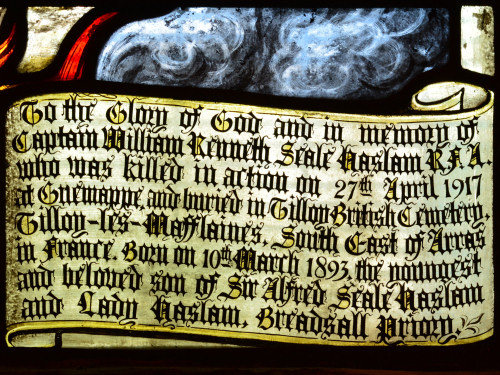 To the Glory of God and in memory of
Captain William Kenneth Seale Haslam R.F.A.
who was killed in action on 27th April 1917
at Guemappe, and buried in Tilloy British Cemetery,
Tilloy-les-Mafflaines, South East of Arras
in France. Born on 10th March 1893, the youngest
and beloved son of Sir Alfred Seale Haslam
and Lady Haslam, Breadsall Priory.